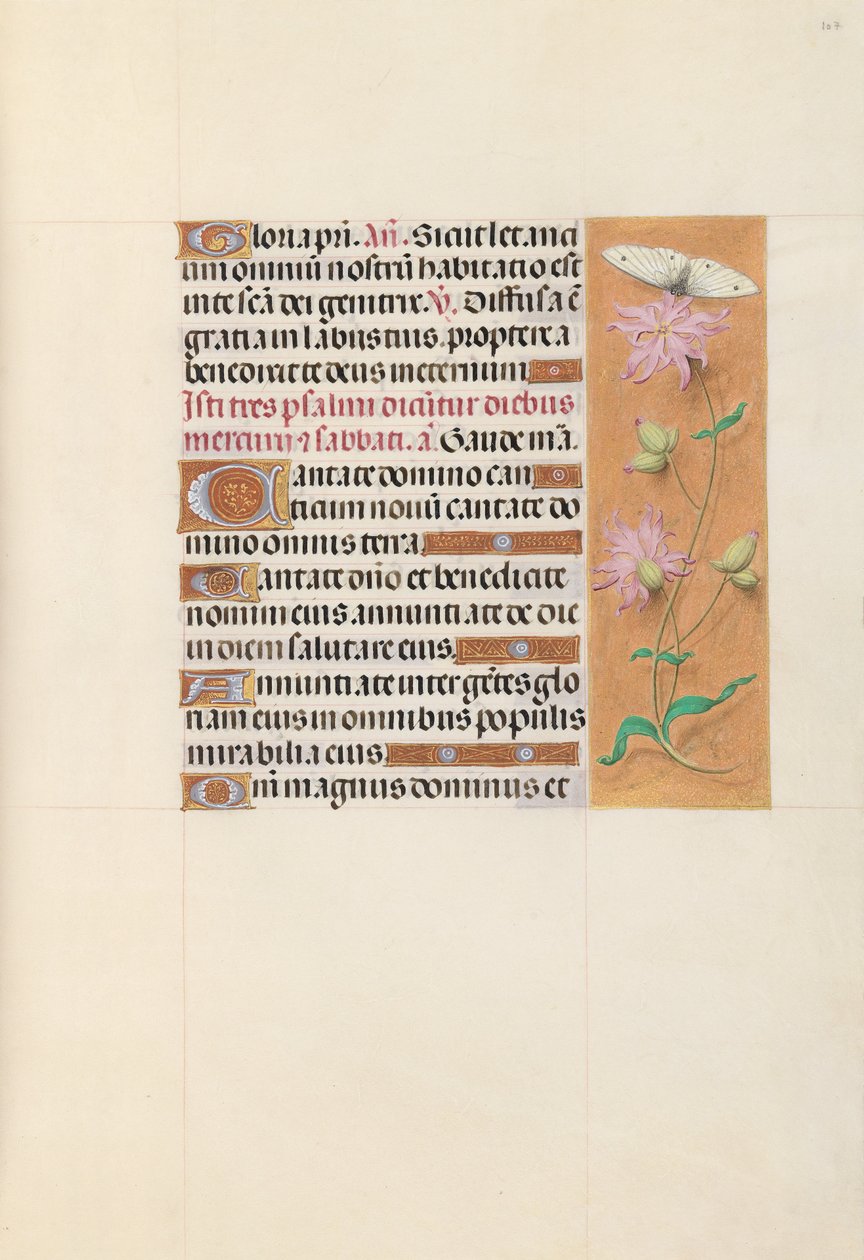 107
Gloria pr̃i. Añ. Sicut letanci
um omniũ nostrũ habitatio est
in te scã dei genitrix. V̾. Diffusa ẽ
gratia in labiis tuis. propterea
benedixit te deus in eternum
Isti tres psalmi dicũtur diebus
mercurij ⁊ sabbati. ã. Gaude mr̃a.
Cantate domino can
ticum novũ cantate do
mino omnis terra
Cantate dño et benedicite
nomini eius annuntiate de die
in diem salutare eius.
Annuntiate inter gẽtes glo
riam eius in omnibus populis
mirabilia eius
Qm̃ magnus dominus et